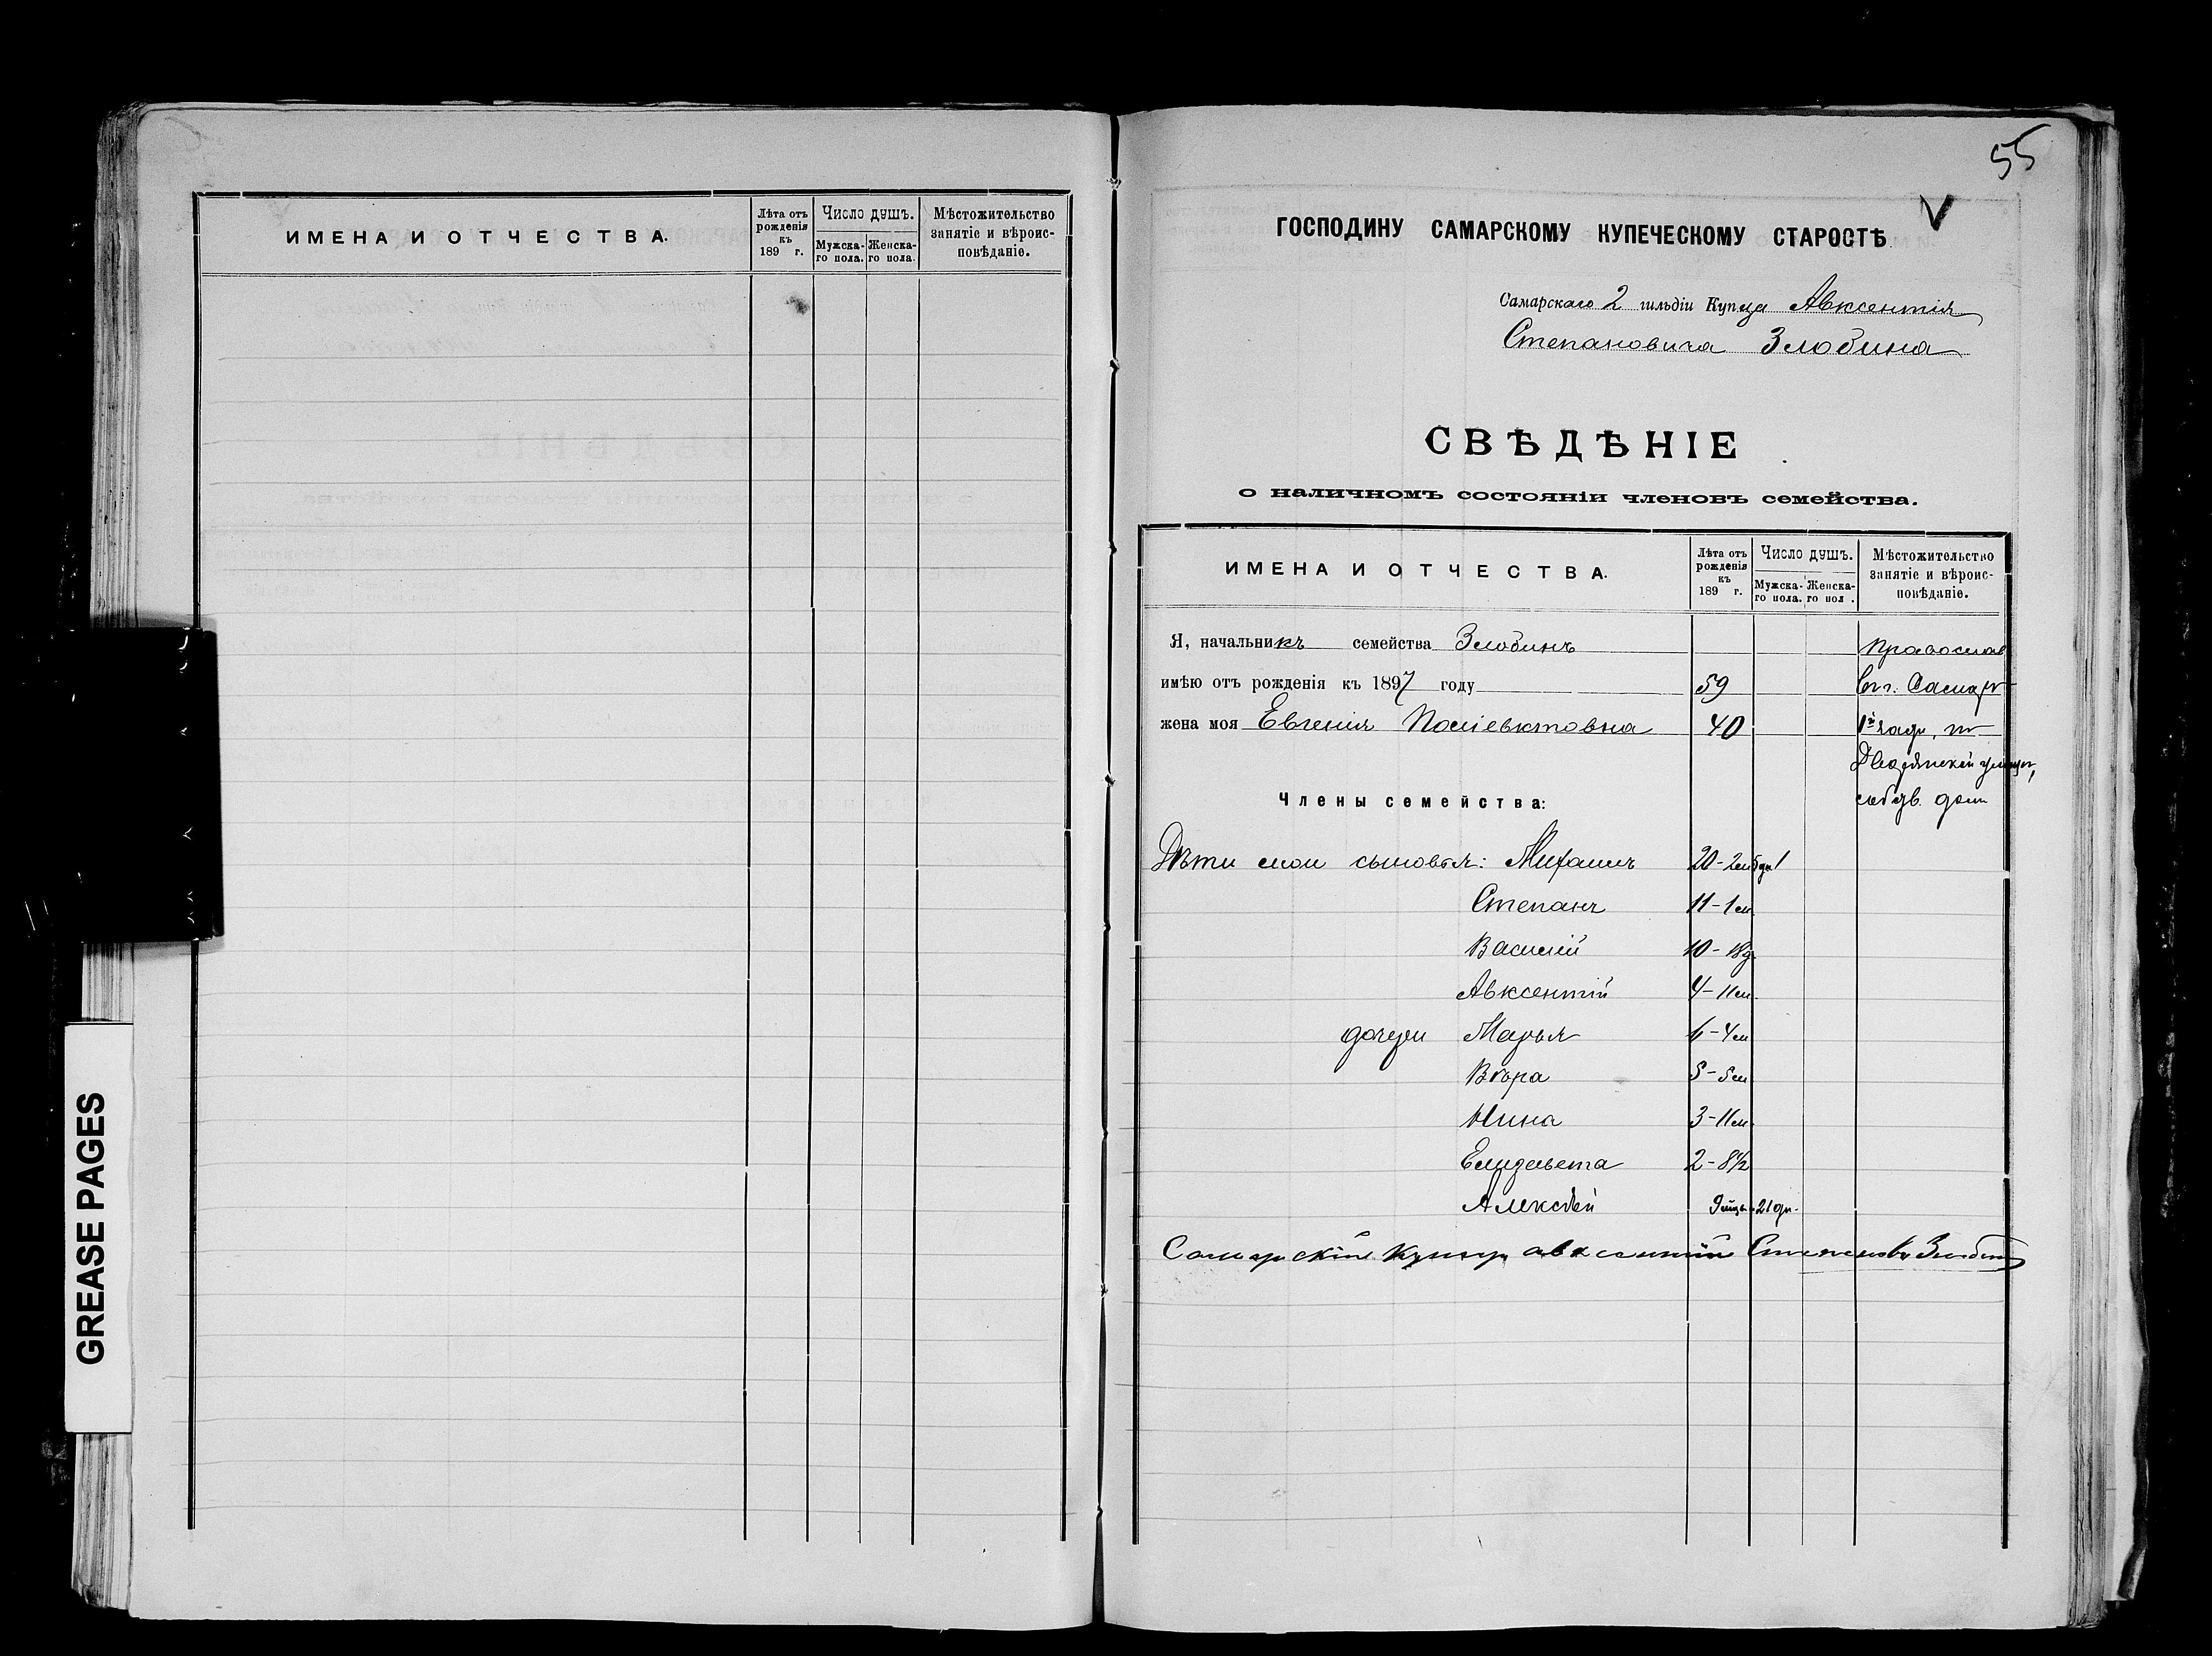 ИМЕНА И ОТЧЕСТВА.
Лѣта отъ рожденія къ 189 г.
Число душъ.
Мужска-го пола.
Женска-го пола.
Мѣстожительство занятіе и вѣроис-повѣданіе.
GREASE PAGES
55
V
ГОСПОДИНУ САМАРСКОМУ КУПЕЧЕСКОМУ СТАРОСТѢ.
Самарскаго 2 гильдіи Купца Авксентія
Степановича Злобина
СВѢДѢНІЕ
о наличномъ состояніи членовъ семейства.
ИМЕНА И ОТЧЕСТВА.
Лѣта отъ рожденія къ 189 г.
Число душъ.
Мужска-го пола.
Женска-го пол .
Мѣстожительство занятіе и вѣроис-повѣданіе.
Я, начальникъ семейства Злобинъ Православ
имѣю отъ рожденія къ 1897 году 59 въ г. Самарѣ
жена моя Евгенія Поліевктовна 40 1й части, по
Дворянской улицѣ,
Члены семейства: собств. домъ
Дѣти мои сыновья: Михаилъ 20-2м 5 дн
Степанъ 11-1м
Василій 10-18д.
Авксентій 4-11м.
дочери Марья 6-4м
Вѣра 5-5м
Нина 3-11м.
Елизавета 2-8½
Алексѣй 9 мѣс. 21 дн.
Самарскій Купецъ Авксентій Степановъ Злобинъ